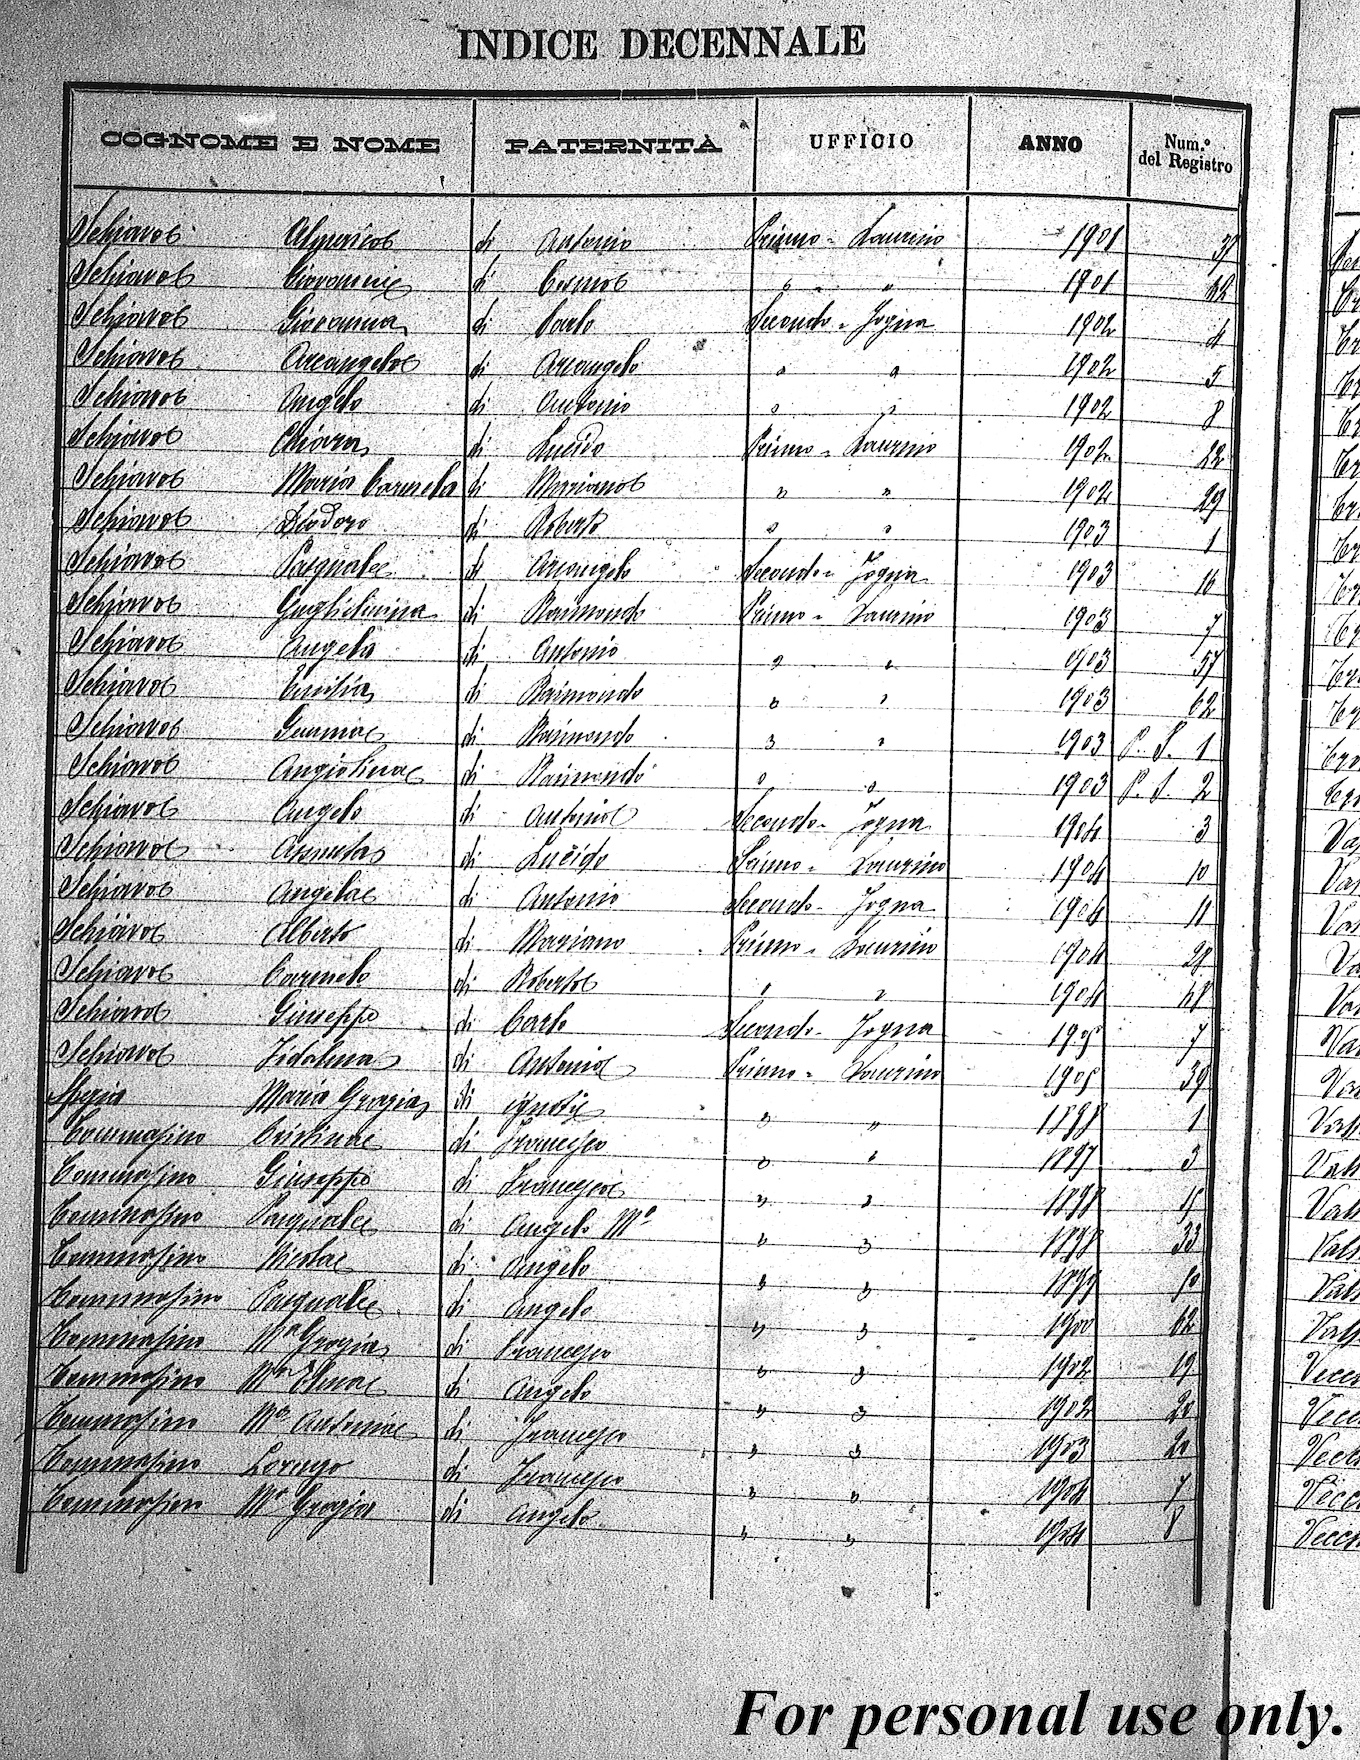 INDICE DECENNALE
COGNOME E NOME PATERNITÀ UFFICIO ANNO Num.º del Registro
Schiavo Almerico di Antonio Primo - Laurino 1901 37
Schiavo Giovanni di Cosmo " " 1901
Schiavo Giovanna di Carlo Secondo - Fogna 1902 4
Schiavo Arcangelo di Arcangelo " " 1902 5
Schiavo Angelo di Antonio " " 1902 8
Schiavo Chiara di Lucido Primo - Laurino 1902 22
Schiavo Maria Carmela di Mariano " " 1902 29
Schiavo di Roberto " " 1903 1
Schiavo Pasquale di Arcangelo Secondo - Fogna 1903 16
Schiavo Guglielmina di Raimondo Primo - Laurino 1903 7
Schiavo Angela di Antonio " " 1903 57
Schiavo Emilia di Raimondo " " 1903 62
Schiavo di Raimondo " " 1903 P. S. 1
Schiavo Angiolina di Raimondo " " 1903 P. S. 2
Schiavo Angelo di Antonio Secondo - Fogna 1904 3
Schiavo Assunta di Lucido Primo - Laurino 1904 10
Schiavo Angela di Antonio Secondo - Fogna 1904 11
Schiavo Alberto di Mariano Primo - Laurino 1904 28
Schiavo Carmelo di Roberto " " 1904 48
Schiavo Giuseppe di Carlo Secondo - Fogna 1905 7
Schiavo Fidalma di Antonio Primo - Laurino 1905 39
Maria Grazia di ignoti " " 1898 1
Tommasino Cristina di Francesco " " 1897 3
Tommasino Giuseppe di Francesco " " 1898 15
Tommasino Pasquale di Angelo Mª " " 1898 33
Tommasino Nicola di Angelo " " 1899 50
Tommasino Pasquale di Angelo " " 1900 62
Tommasino Mª Grazia di Francesco " " 1902 19
Tommasino Mª Elena di Angelo " " 1902 20
Tommasino Mª Antonia di Francesco " " 1903 20
Tommasino Lorenzo di Francesco " " 1904 7
Tommasino Mª Grazia di Angelo " " 1904 8
For personal use only.